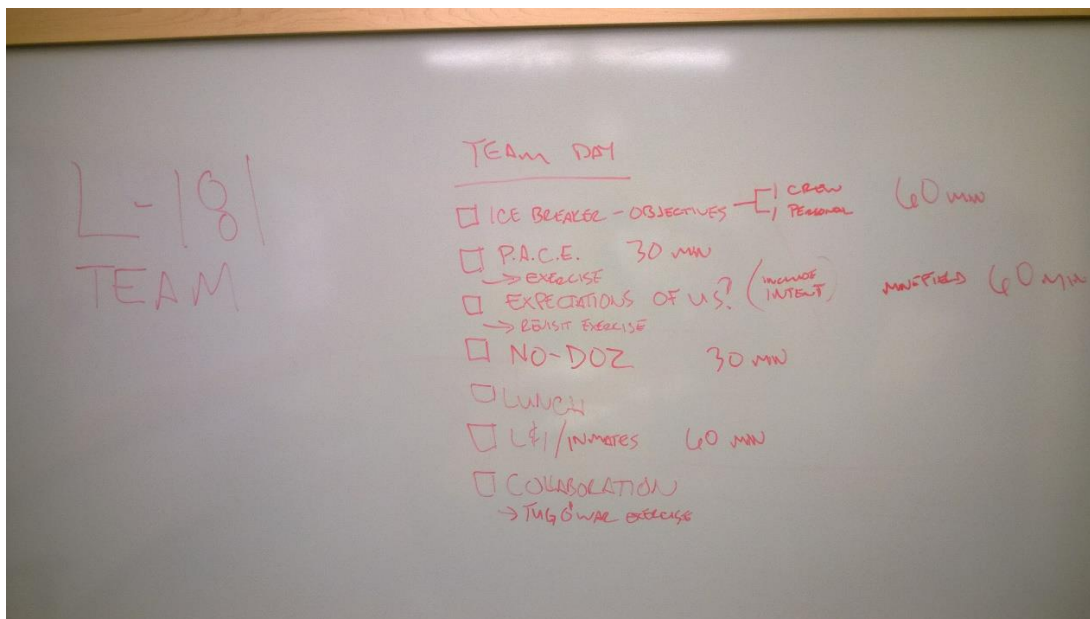 L-181
TEAM
TEAM DAY
ICE BREAKER - OBJECTIVES 1 CREW 60 MIN
1 PERSONAL
P.A.C.E. 30 MIN
→ EXERCISE
EXPECTATIONS OF US? (INCLUDE INTENT) MINEFIELD 60 MIN
→ REVISIT EXERCISE
NO-DOZ 30 MIN
LUNCH
L&I/INMATES 60 MIN
COLLABORATION
→ TUG O'WAR EXERCISE